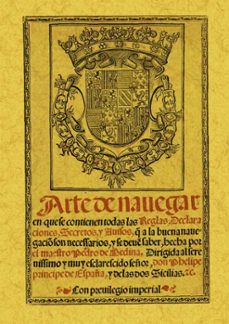 Arte de nauegar
en que se contienen todas las Reglas, Declara
ciones, Secretos, y Auisos, q̃ a la buena naue
gaciõ son necessarios, y se deuẽ saber, hecha por
el maestro Pedro de Medina. Dirigida al sere
nissimo y muy esclarecido señor, don Phelipe
principe de España, y delas dos Sicilias. ⁊c.
Con preuilegio imperial